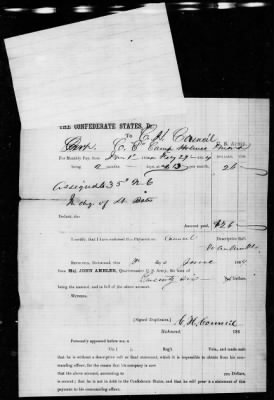 THE CONFEDERATE STATES, Dr
To C. H. Council
Corp. Co. E Camp Holmes
For Monthly Pay, from
being 2 months days, at 13 26
assigned to 35 N.C.
In chg of Lt Bates
Deduct, due
Amount paid, $26
I certify that I have endorsed this Payment on Council Descriptive Roll.
RECEIVED, Richmond, this June 1864
from MAJ. JOHN AMBLER, Quartermaster C. S. Army, the sum of
Twenty Six Dollars,
being the amount, and in full of the above account.
WITNESS,
(Signed Duplicates.) C. H. Council
Richmond, 186
Personally appeared before me, a
Vis.( ), Reg't Vols., and made oath
that he is without a descriptive roll or final statement, which it is impossible to obtain from his com-
manding officer, for the reason that his company is now
that the above account, amounting to Dollars,
is correct; that he is not in debt to the Confederate States, and that he will report a statement of this
payment to his commanding officer.